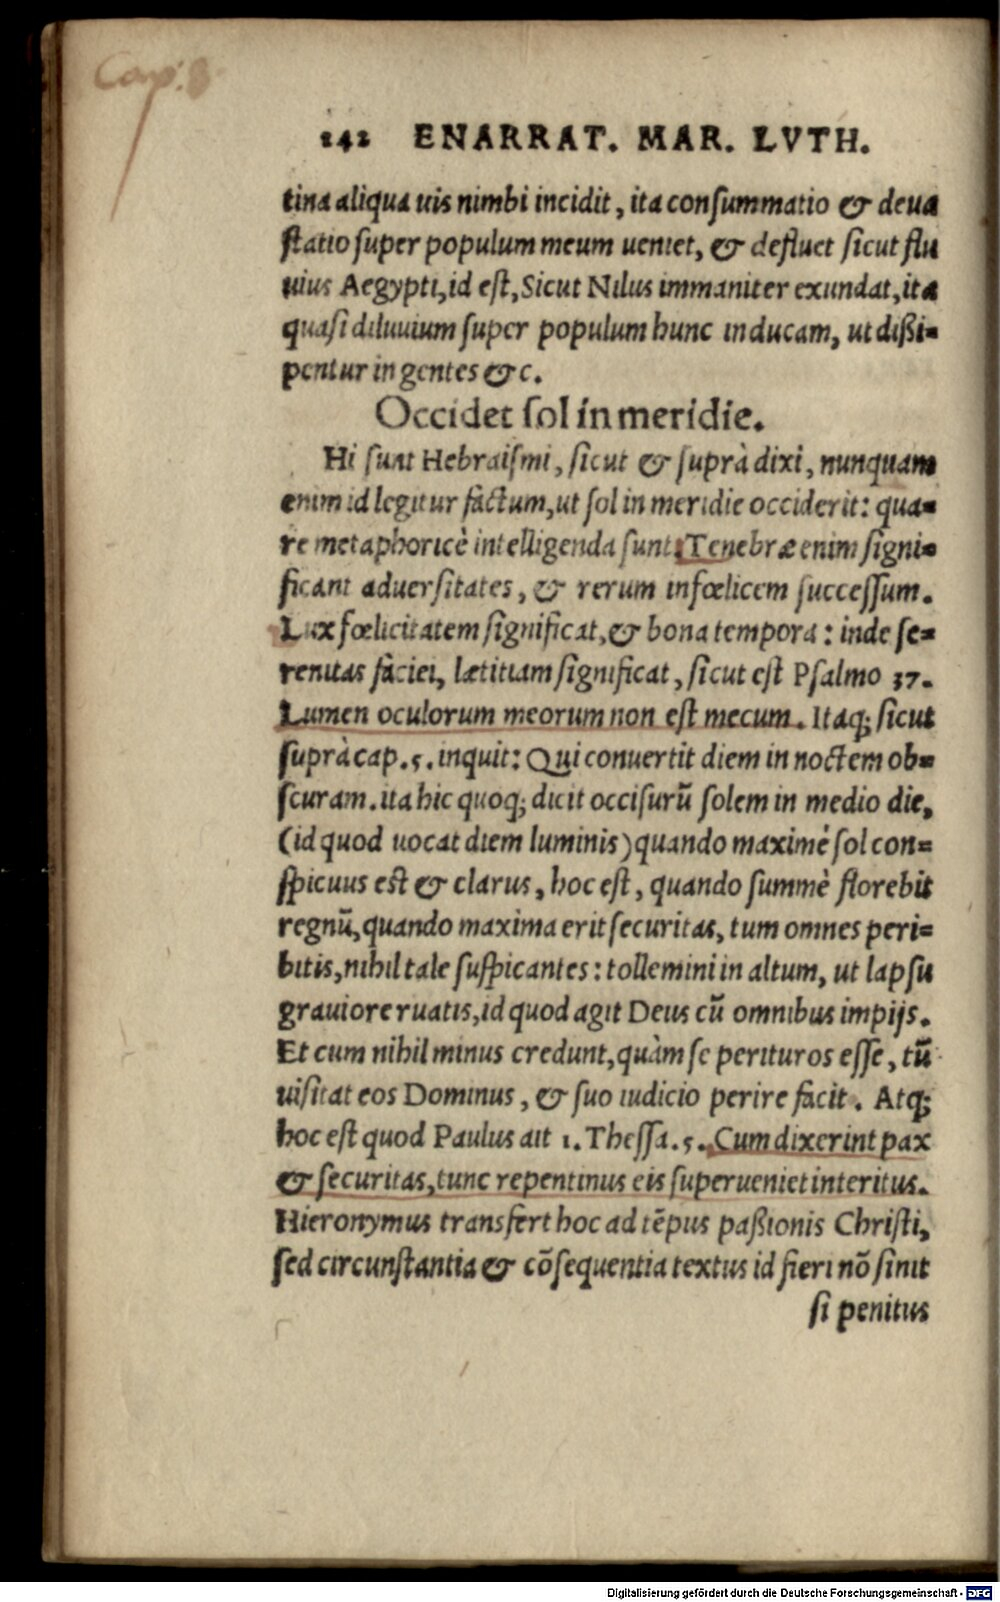 Cap: 8
242 ENARRAT. MAR. LVTH.
tina aliqua uis nimbi incidit, ita consummatio & deua
statio super populum meum ueniet, & defluet sicut flu
uius Aegypti, id est, Sicut Nilus immaniter exundat, ita
quasi diluuium super populum hunc inducam, ut dißi=
pentur in gentes &c.
Occidet sol in meridie.
Hi sunt Hebraismi, sicut & suprà dixi, nunquam
enim id legitur factum, ut sol in meridie occiderit: qua=
re metaphoricè intelligenda sunt. Tenebræ enim signi=
ficant aduersitates, & rerum infœlicem successum.
Lux fœlicitatem significat, & bona tempora: inde se=
renitas faciei, lætitiam significat, sicut est Psalmo 37.
Lumen oculorum meorum non est mecum. Itaq; sicut
suprà cap. 5. inquit: Qui conuertit diem in noctem ob=
scuram. ita hic quoq; dicit occisurũ solem in medio die,
(id quod uocat diem luminis) quando maximè sol con=
spicuus est & clarus, hoc est, quando summè florebit
regnũ, quando maxima erit securitas, tum omnes peri=
bitis, nihil tale suspicantes: tollemini in altum, ut lapsu
grauiore ruatis, id quod agit Deus cũ omnibus impijs.
Et cum nihil minus credunt, quàm se perituros esse, tũ
uisitat eos Dominus, & suo iudicio perire facit. Atq;
hoc est quod Paulus ait 1. Thessa. 5. Cum dixerint pax
& securitas, tunc repentinus eis superueniet interitus.
Hieronymus transfert hoc ad tẽpus paßionis Christi,
sed circunstantia & cõsequentia textus id fieri nõ sinit
si penitus
Digitalisierung gefördert durch die Deutsche Forschungsgemeinschaft - DFG